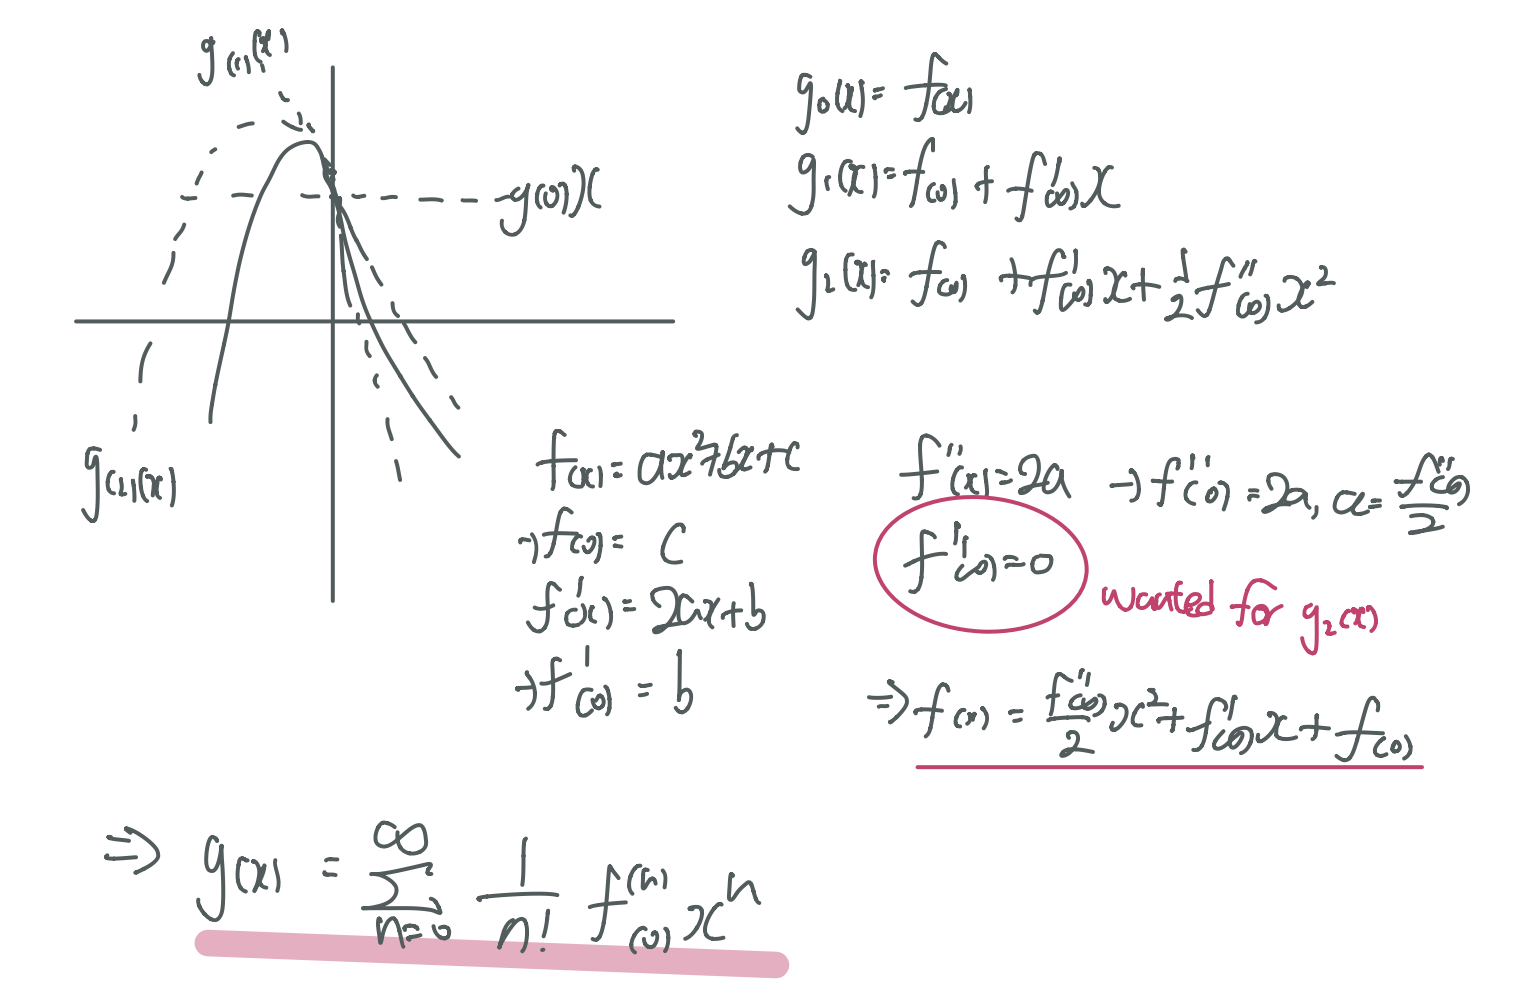 g₍₁₎(x)
g(0)x
g₍₂₎(x)
g₀(x) = f(x)
g₁(x) = f(0) + f'(0)x
g₂(x) = f(0) + f'(0)x + 1/2 f''(0)x²
f(x) = ax² + bx + c
→ f(0) = c
f'(x) = 2ax + b
→ f'(0) = b
f''(x) = 2a → f''(0) = 2a, a = f''(0)/2
f''(0) = 0
wanted for g₂(x)
⇒ f(x) = f''(0)/2 x² + f'(0)x + f(0)
⇒ g(x) = ∑_{n=0}^{∞} 1/n! f⁽ⁿ⁾(0) xⁿ